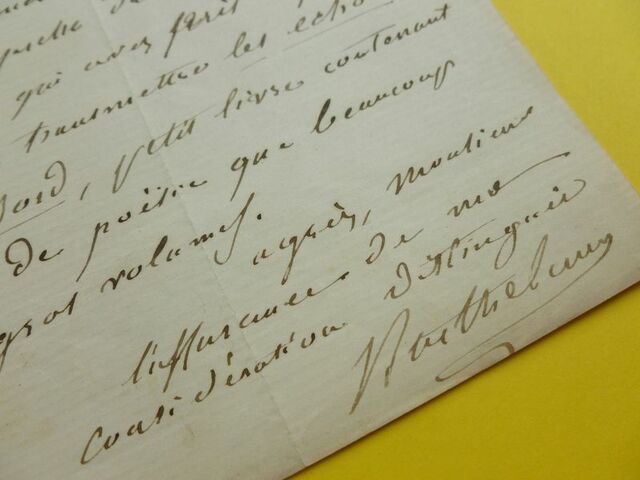 qui avez
transmettre les écho
Nord, petit livre contenant
de poësie que beaucoup
gros volumes.
agréez, Monsieur
l'assurance de ma
considération distinguée
Barthélemy